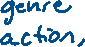 genre
action,